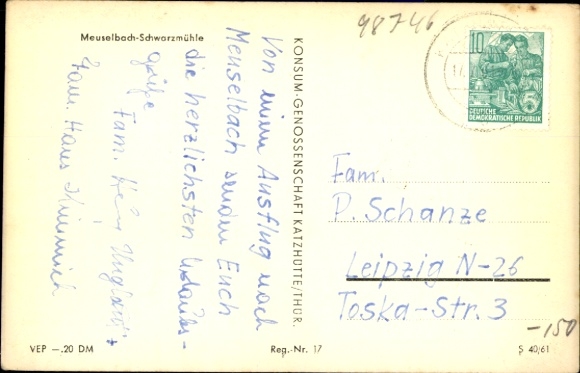 98746
Meuselbach-Schwarzmühle
Von einem Ausflug nach
Meuselbach senden Euch
die herzlichsten Urlaubs-
grüße
Fam.
Fam. Hans
KONSUM-GENOSSENSCHAFT KATZHÜTTE/THÜR.
10
5
DEUTSCHE
DEMOKRATISCHE REPUBLIK
Fam.
P. Schanze
Leipzig N-26
Toska-Str. 3
-150
VEP —.20 DM
Reg.-Nr. 17
S 40/61